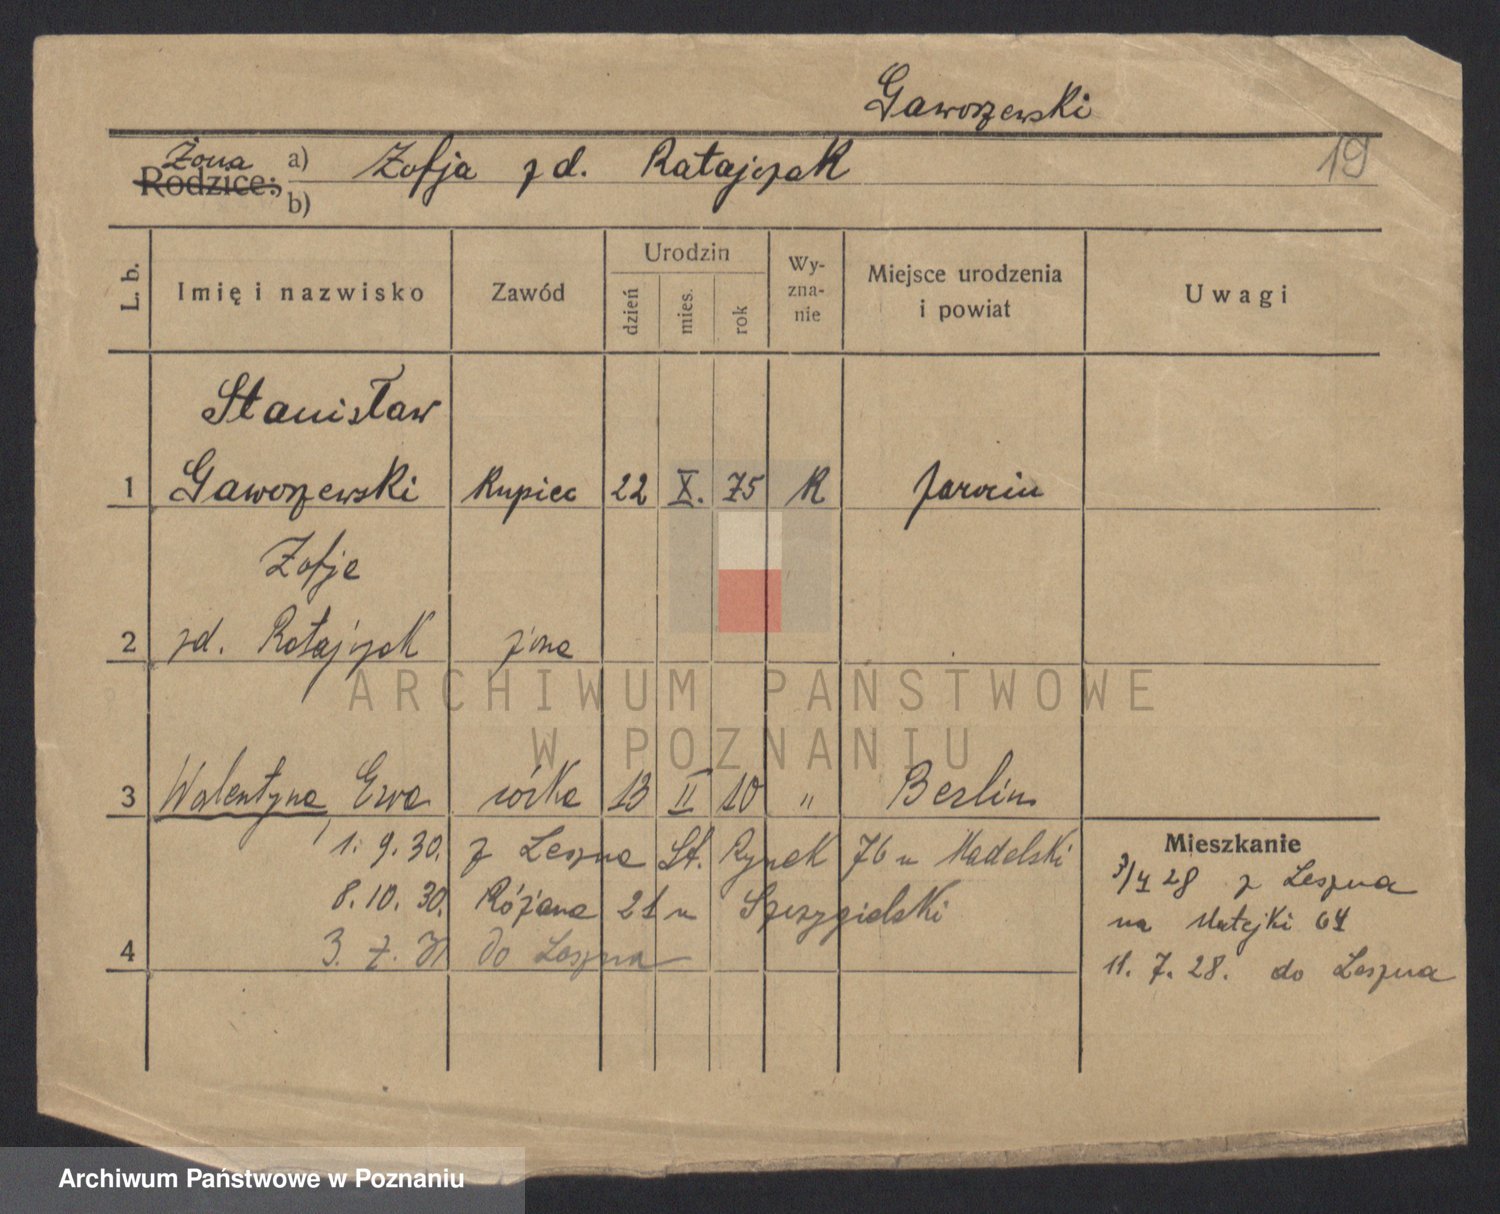 Gaworzewski
Żona a) Zofja z d. Ratajczak 19
Rodzice: b)
L. b. Imię i nazwisko Zawód Urodzin dzień mies. rok Wyznanie Miejsce urodzenia i powiat Uwagi
Stanisław
1 Gaworzewski Kupiec 22 X. 75 R Jarocin
Zofje
2 zd. Ratajczak żona
ARCHIWUM PAŃSTWOWE
W POZNANIU
3 Walentyna Ewa córka 13 II 10 " Berlin
Mieszkanie
1. 9. 30. z Leszna St. Rynek 76 u Nadolski
8. 10. 30. Różana 21 u Szczygielski
4 3. 7. 31 do Leszna
28 z Leszna
na Matejki 64
11. 7. 28. do Leszna
Archiwum Państwowe w Poznaniu